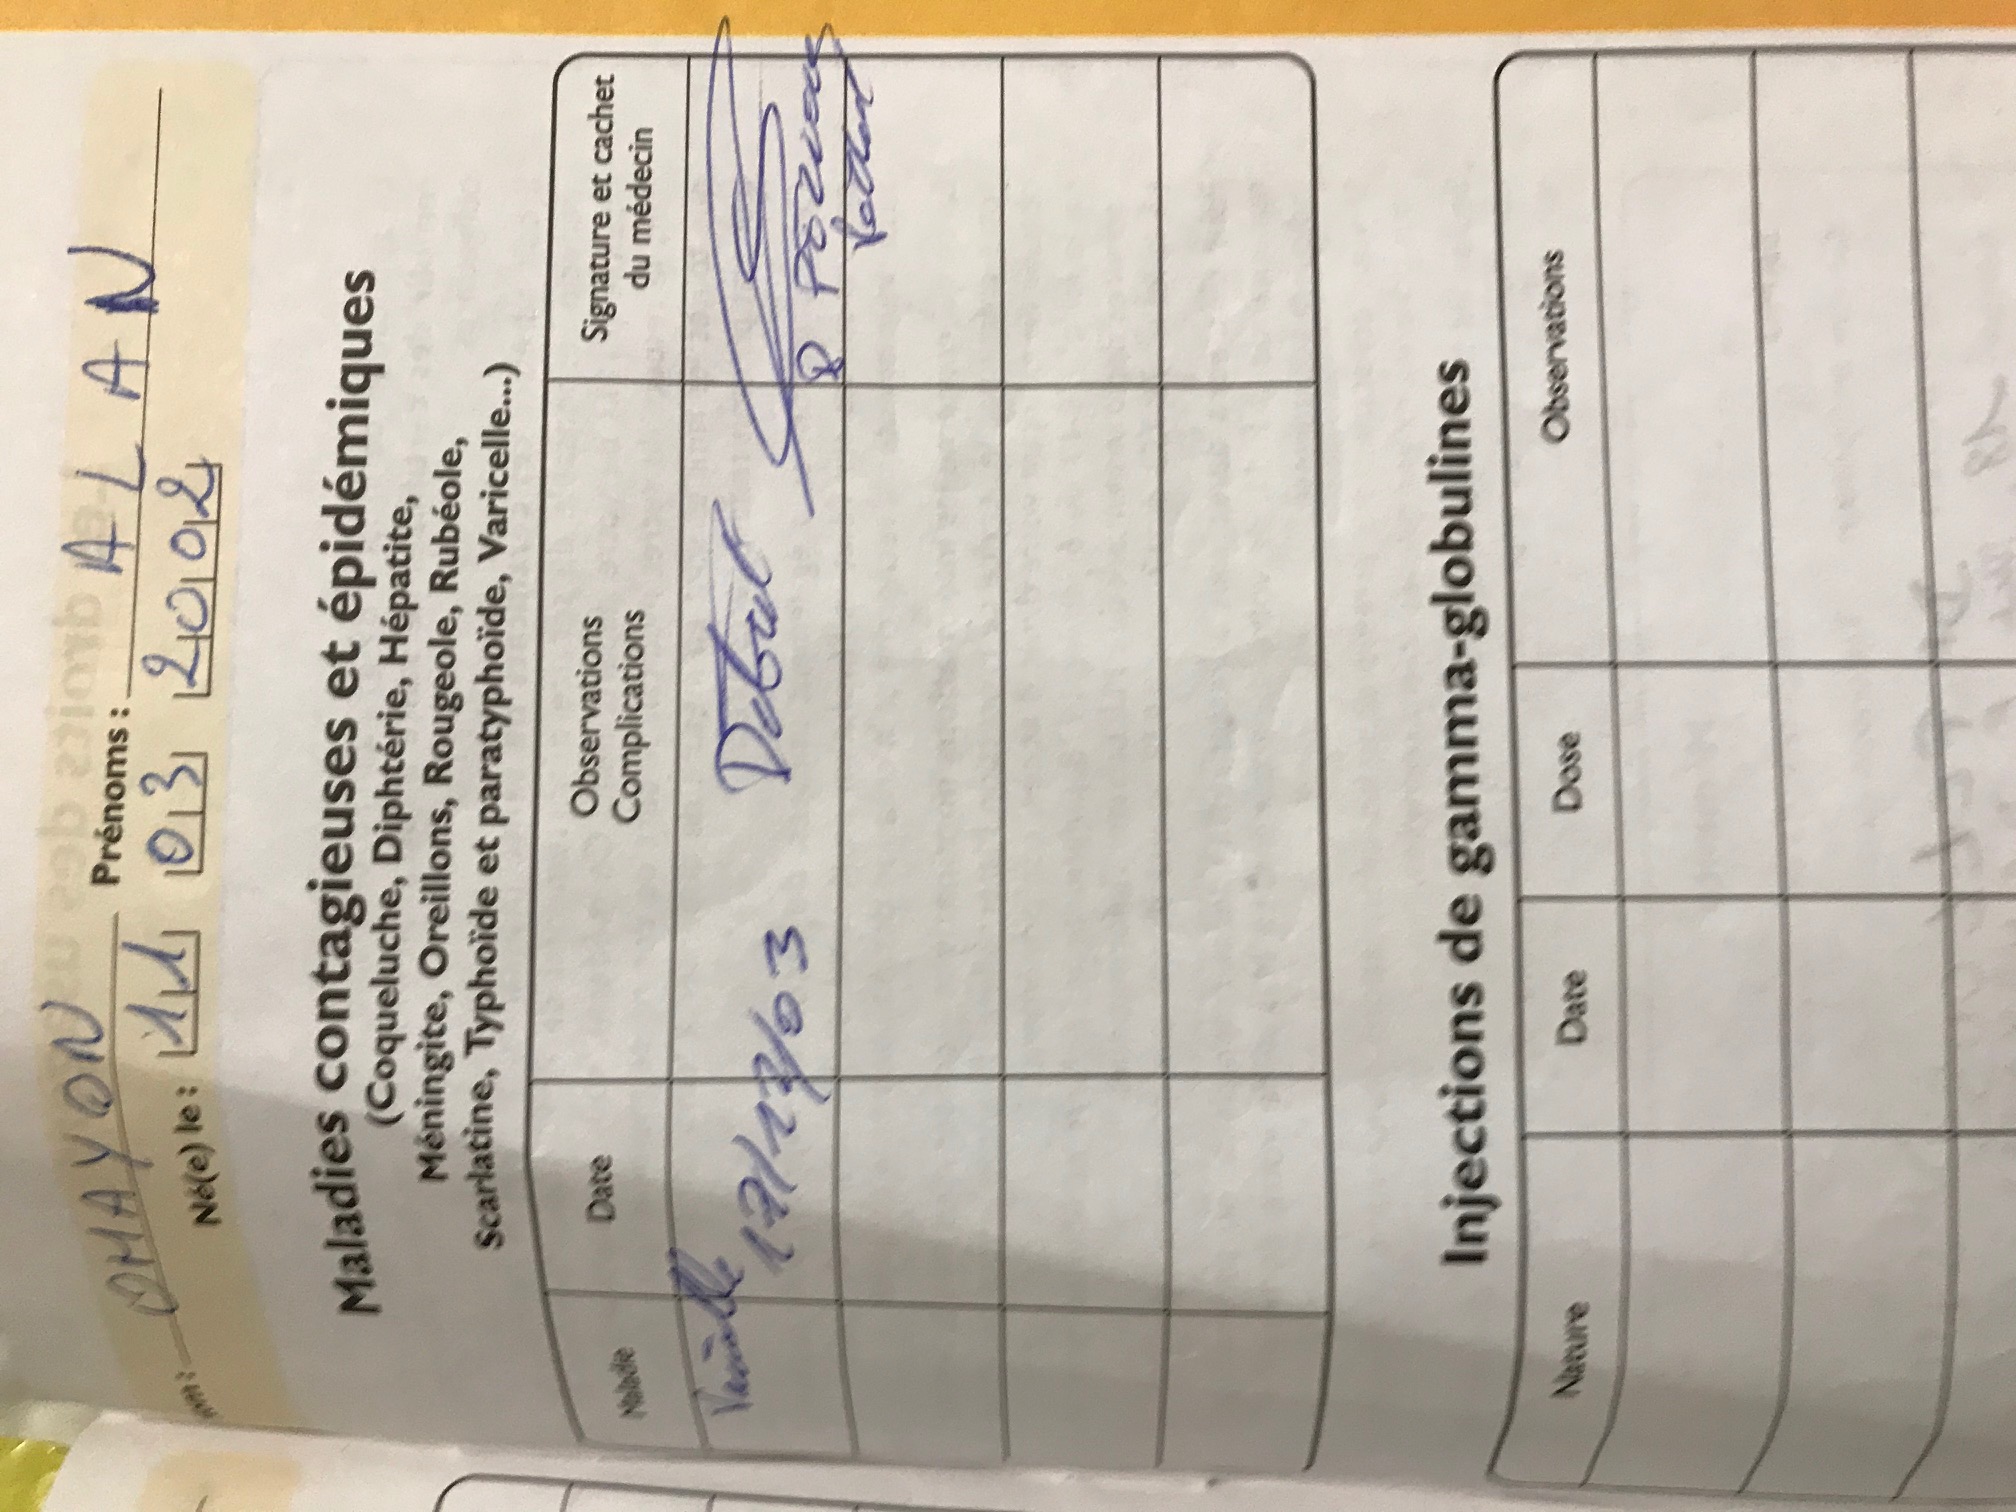 OHAYON Prénoms : ALAN
Né(e) le : 11 03 2002
Maladies contagieuses et épidémiques
(Coqueluche, Diphtérie, Hépatite,
Méningite, Oreillons, Rougeole, Rubéole,
Scarlatine, Typhoïde et paratyphoïde, Varicelle...)
Maladie Date Observations Complications Signature et cachet du médecin
Varicelle Début
Injections de gamma-globulines
Nature Date Dose Observations